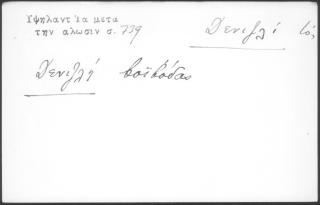 Υψηλαντ Τα μετα
την αλωσιν σ. 739
Δενιζλί
Δενιζλῆ βοϊβόδας